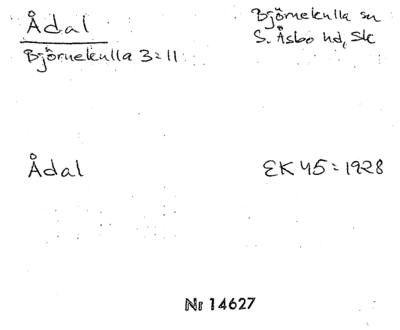 Ådal
Björnekulla 3:11
Björnekulla sn
S. Åsbo hd, Sk
Ådal
EK 45:1928
Nr 14627